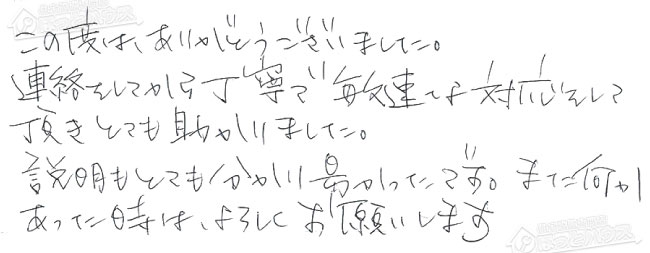 この度は、ありがとうございました。
連絡をしてから丁寧で敏速な対応をして
頂きとても助かりました。
説明もとても分かり易かったです。また何か
あった時は、よろしくお願いします